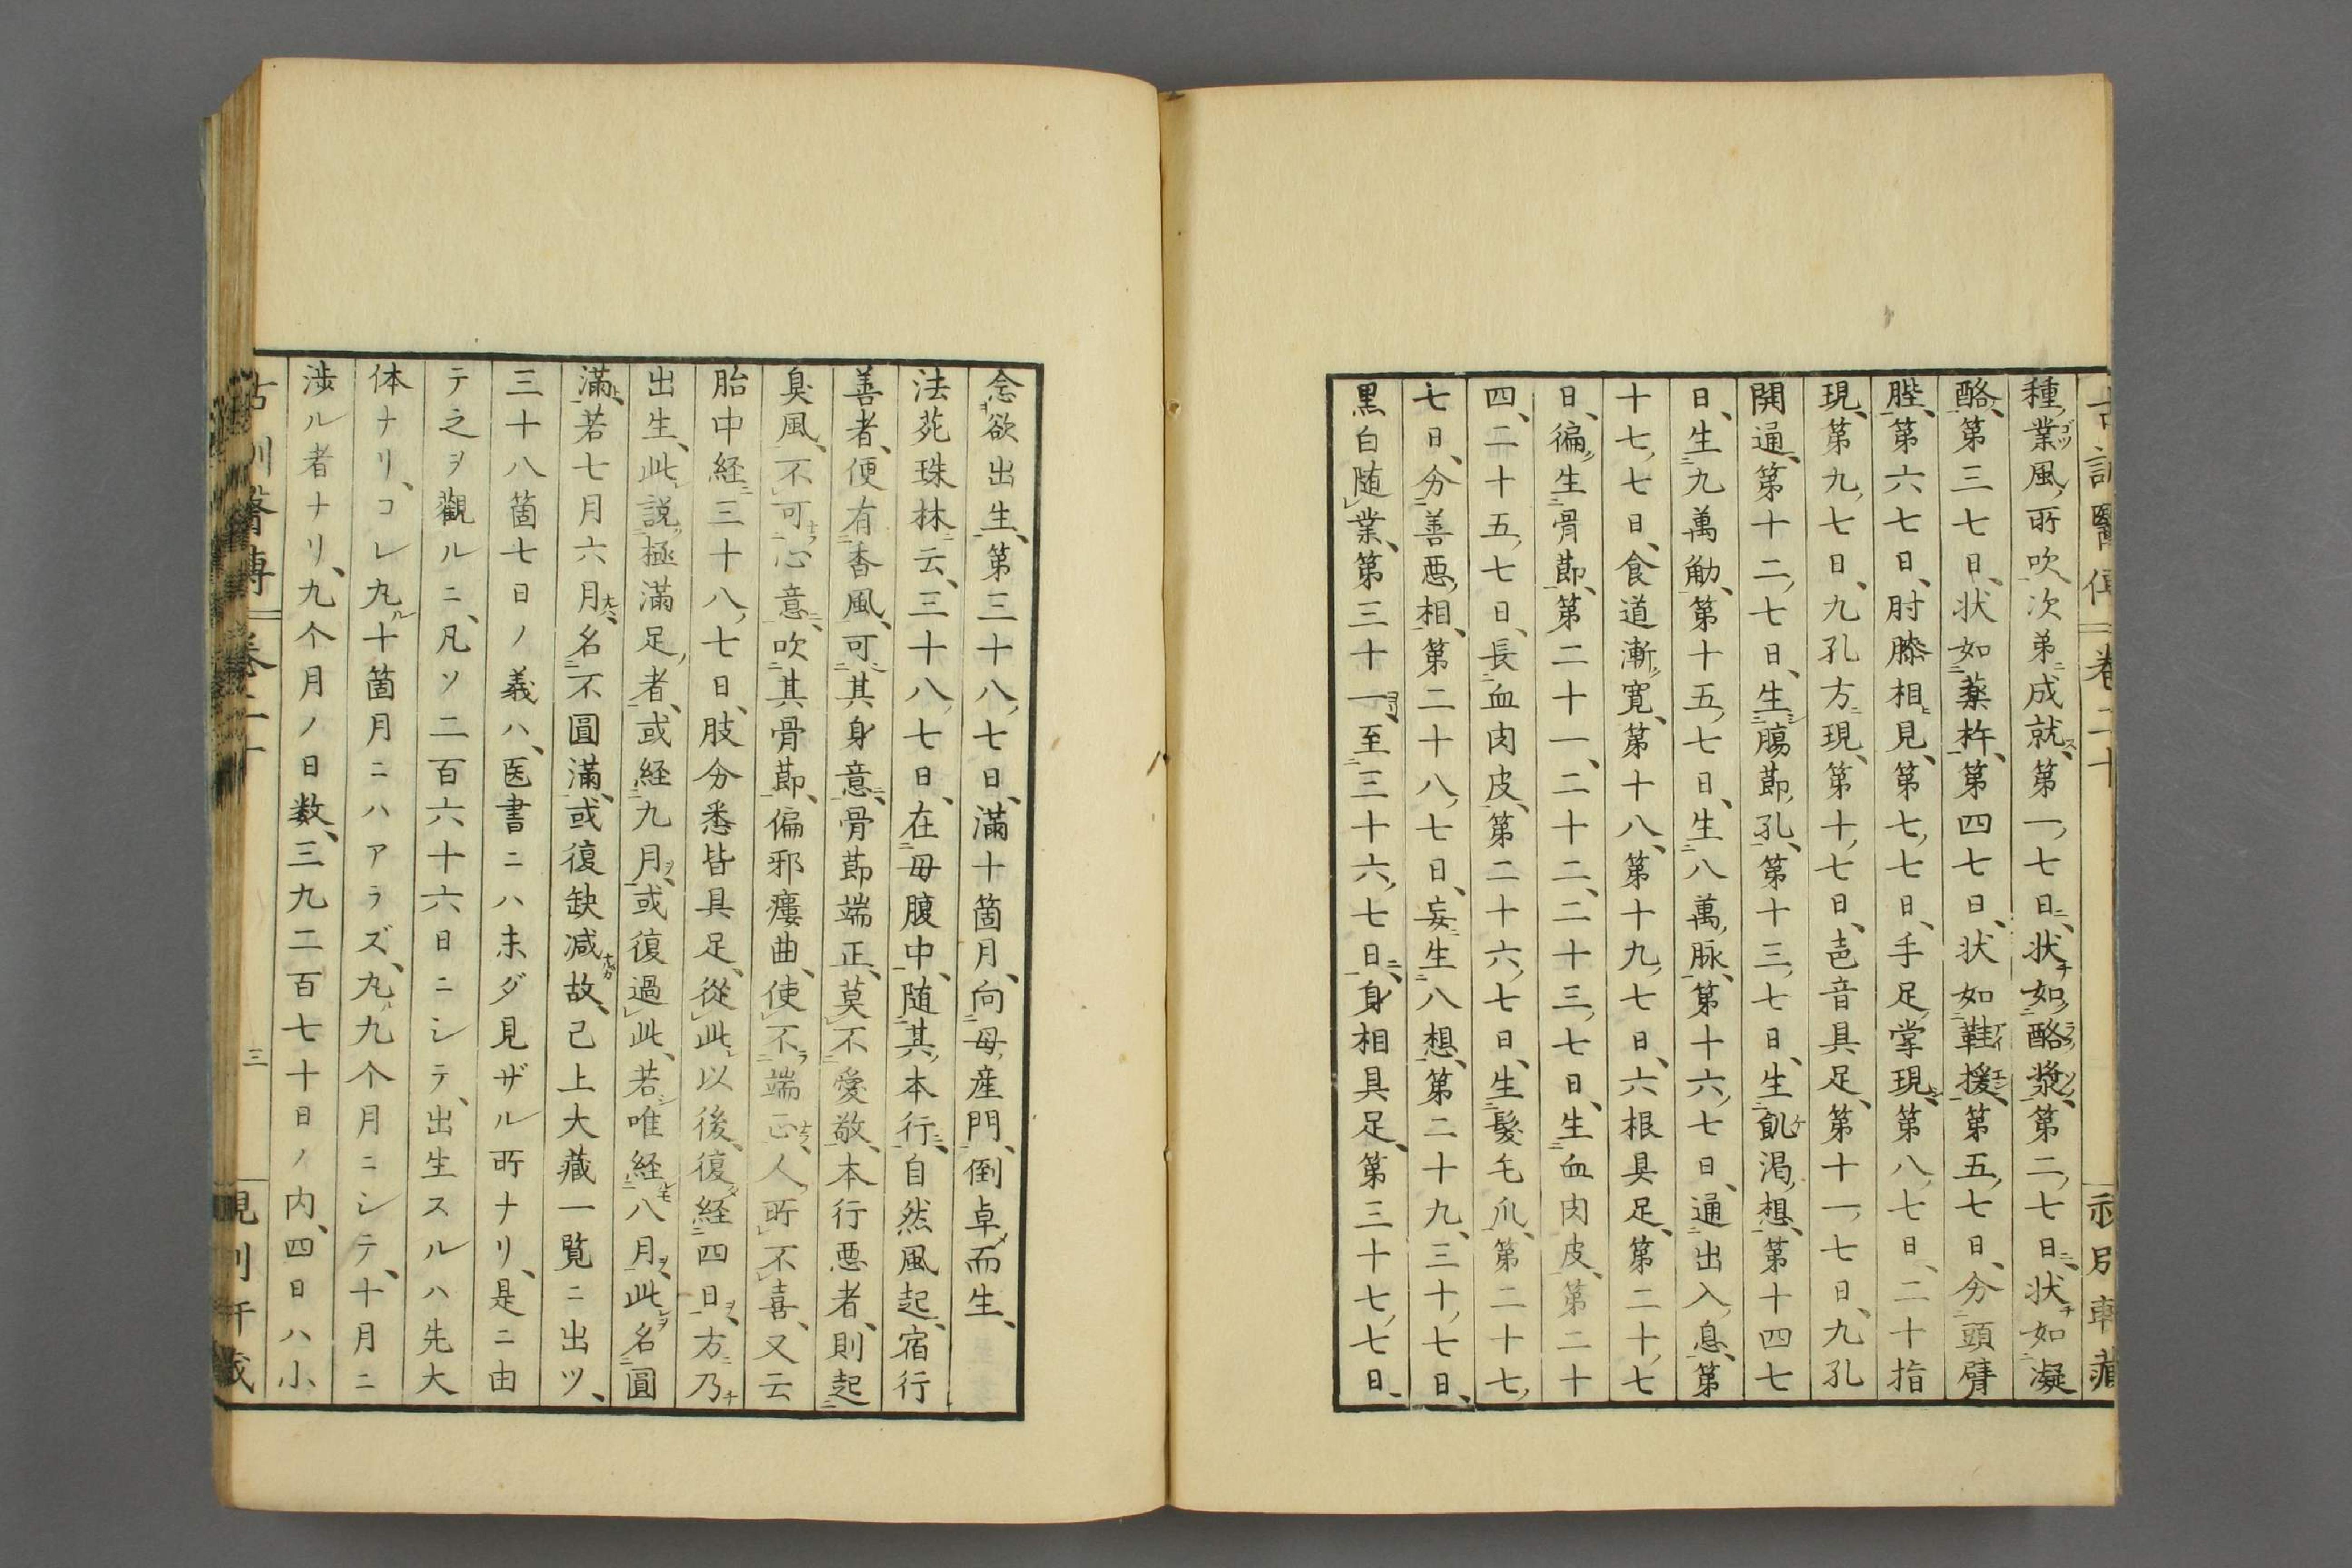 種業風所吹次第成就第一七日状如酪漿第二七日状如凝
酪第三七日状如薬杵第四七日状如鞋援第五七日分頭臂
䏶第六七日肘膝相見第七七日手足掌現第八七日二十指
現第九七日九孔方現第十七日声音具足第十一七日九孔
開通第十二七日生膓節孔第十三七日生飢渇想第十四七
日生九萬觔第十五七日生八萬脉第十六七日通出入息第
十七七日食道漸寛第十八第十九七日六根具足第二十七
日徧生骨節第二十一二十二二十三七日生血肉皮第二十
四二十五七日長血肉皮第二十六七日生髪毛爪第二十七
七日分善悪相第二十八七日妄生八想第二十九三十七日
黒白随業第三十一至三十六七日身相具足第三十七七日
念欲出生第三十八七日満十箇月向母産門倒卓而生
法苑珠林云三十八七日在母腹中随其本行自然風起宿行
善者便有香風可其身意骨節端正莫不愛敬本行悪者則起
臭風不可心意吹其骨節偏邪瘻曲使不端正人所不喜又云
胎中経三十八七日肢分悉皆具足從此以後復経四日方乃
出生此説極満足者或経九月或復過此若唯経八月此名圓
満若七月六月名不圓満或復缺减故已上大藏一覧ニ出ツ
三十八箇七日ノ義ハ医書ニハ未ダ見ザル所ナリ是ニ由
テ之ヲ觀ルニ凡ソ二百六十六日ニシテ出生スルハ先大
体ナリコレ九十箇月ニハアラズ九九个月ニシテ十月ニ
渉ル者ナリ九个月ノ日数三九二百七十日ノ内四日ハ小
三